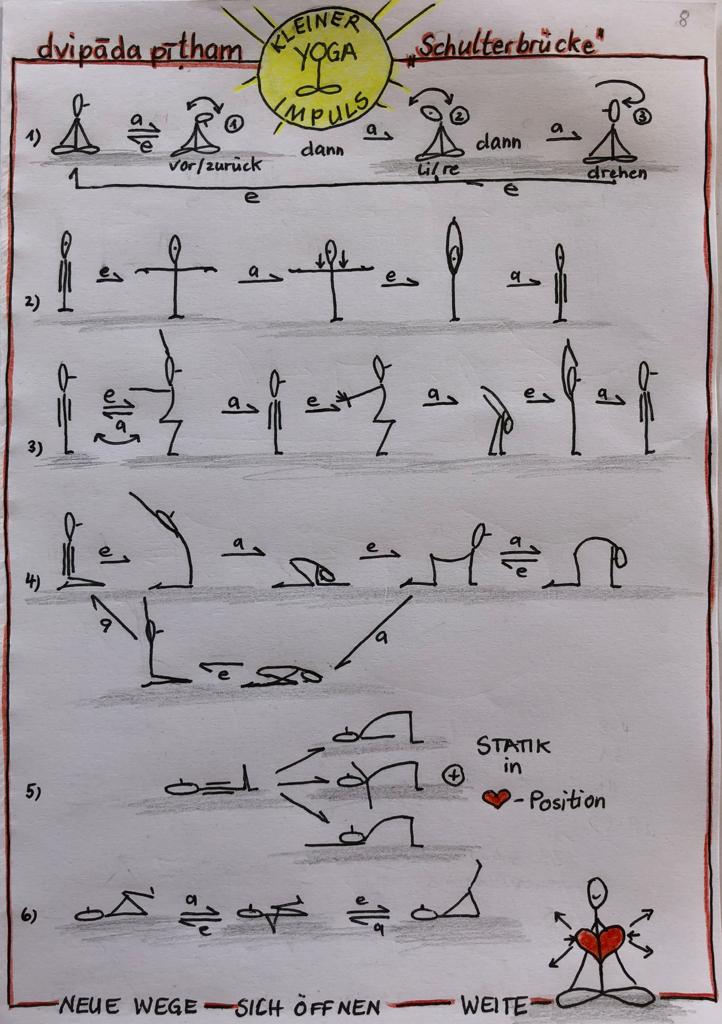 8
dvipāda pīṭham
KLEINER
YOGA
IMPULS
„Schulterbrücke"
1)
a
e
1
vor/zurück
dann
a
2
li/re
dann
a
3
drehen
e
e
2)
e
a
e
a
3)
e
a
a
e
a
e
a
4)
e
a
e
a
e
a
e
a
5)
+
STATIK
in
-Position
6)
a
e
e
a
NEUE WEGE — SICH ÖFFNEN — WEITE